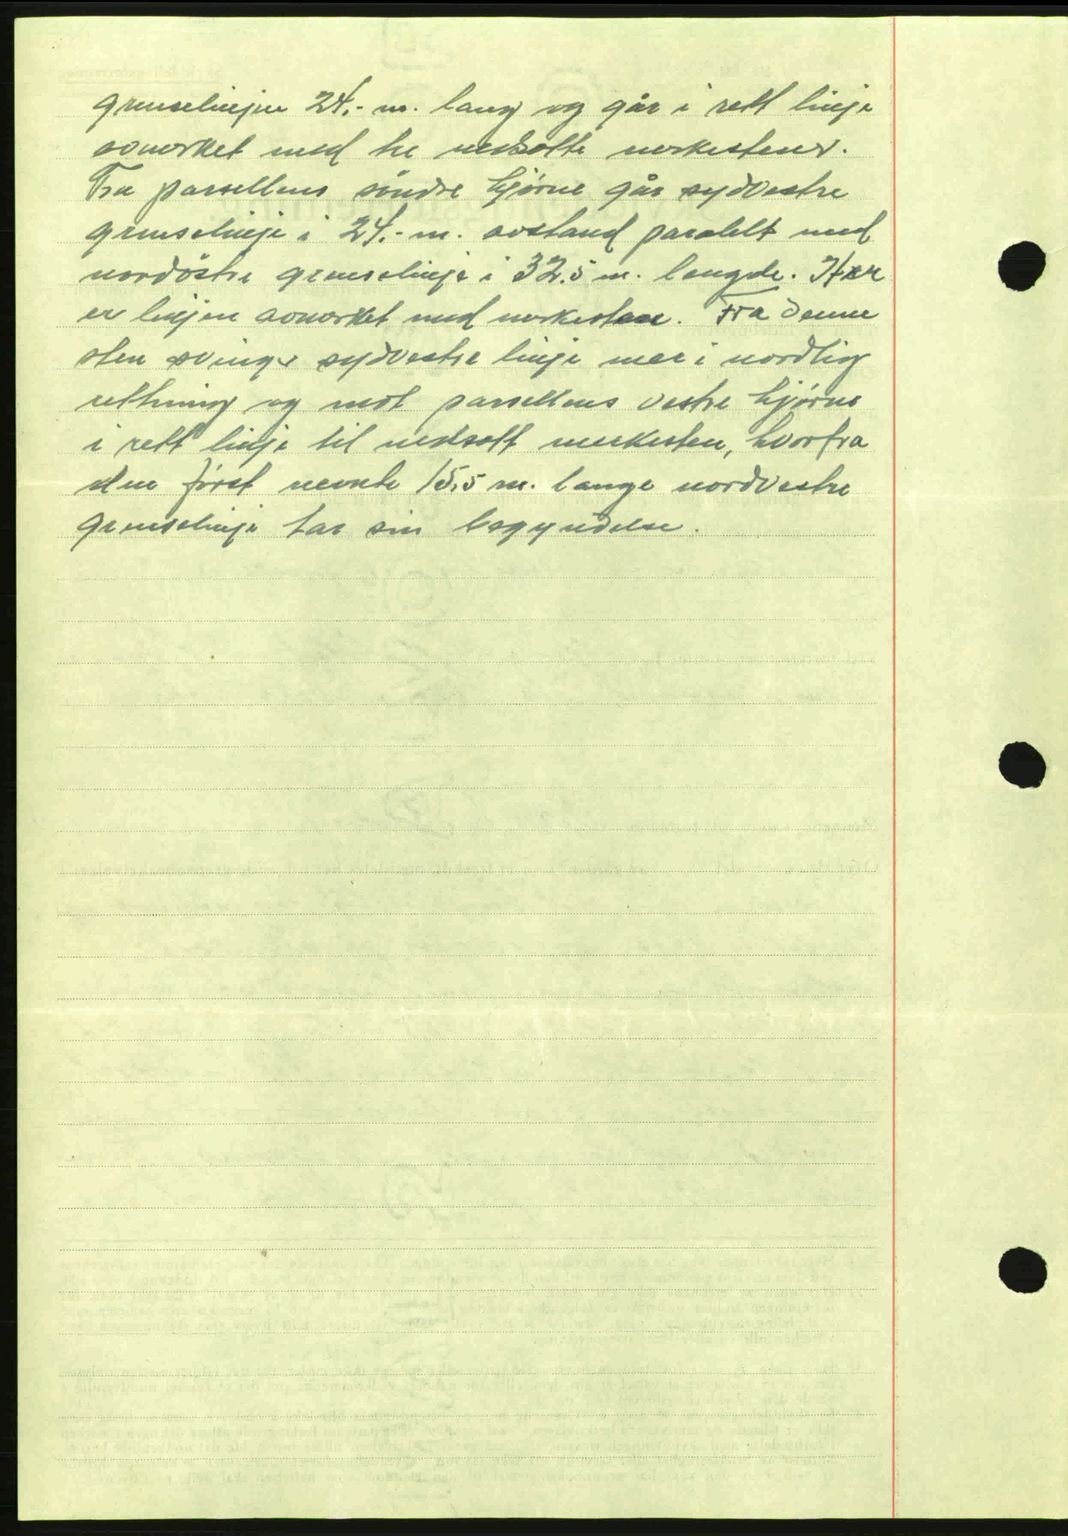 grenselinjen 24,- m. lang og går i rett linje
avmerket med tre nedsatte merkestener.
Fra parsellens söndre hjørne går sydvestre
grenselinje i 24,- m. avstand paralelt med
nordöstre grenselinje i 32,5 m. lengde. Her
er linjen avmerket med merkesten. Fra denne
sten svinger sydvestre linje mer i nordlig
rettning og mot parsellens vestre hjørne
i rett linje til nedsatt merkesten, hvorfra
den först nevnte 15,5 m. lange nordvestre
grenselinje tar sin begyndelse.